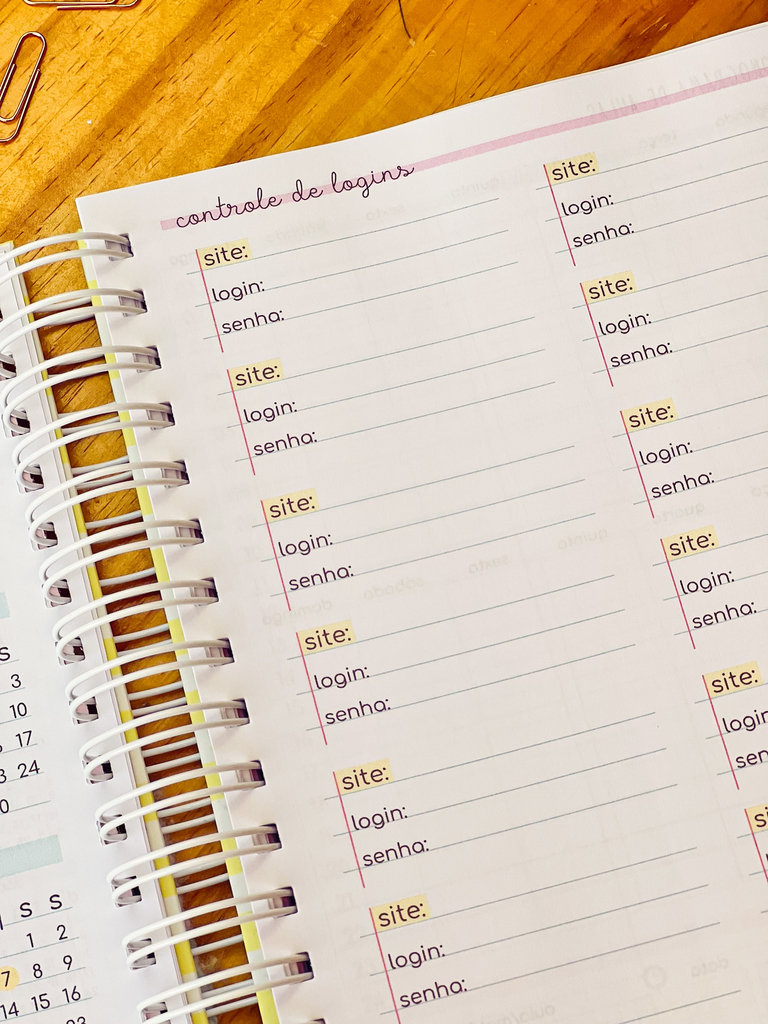 controle de logins
site:
login:
senha:
site:
login:
senha:
site:
login:
senha:
site:
login:
senha:
site:
login:
senha:
site:
login:
senha:
site:
login:
senha:
site:
login:
senha:
site:
login:
senha:
site:
login:
senha:
site:
login
sen
si
S
3
10
17
3 24
0
S S
1 2
7 8 9
14 15 16
23